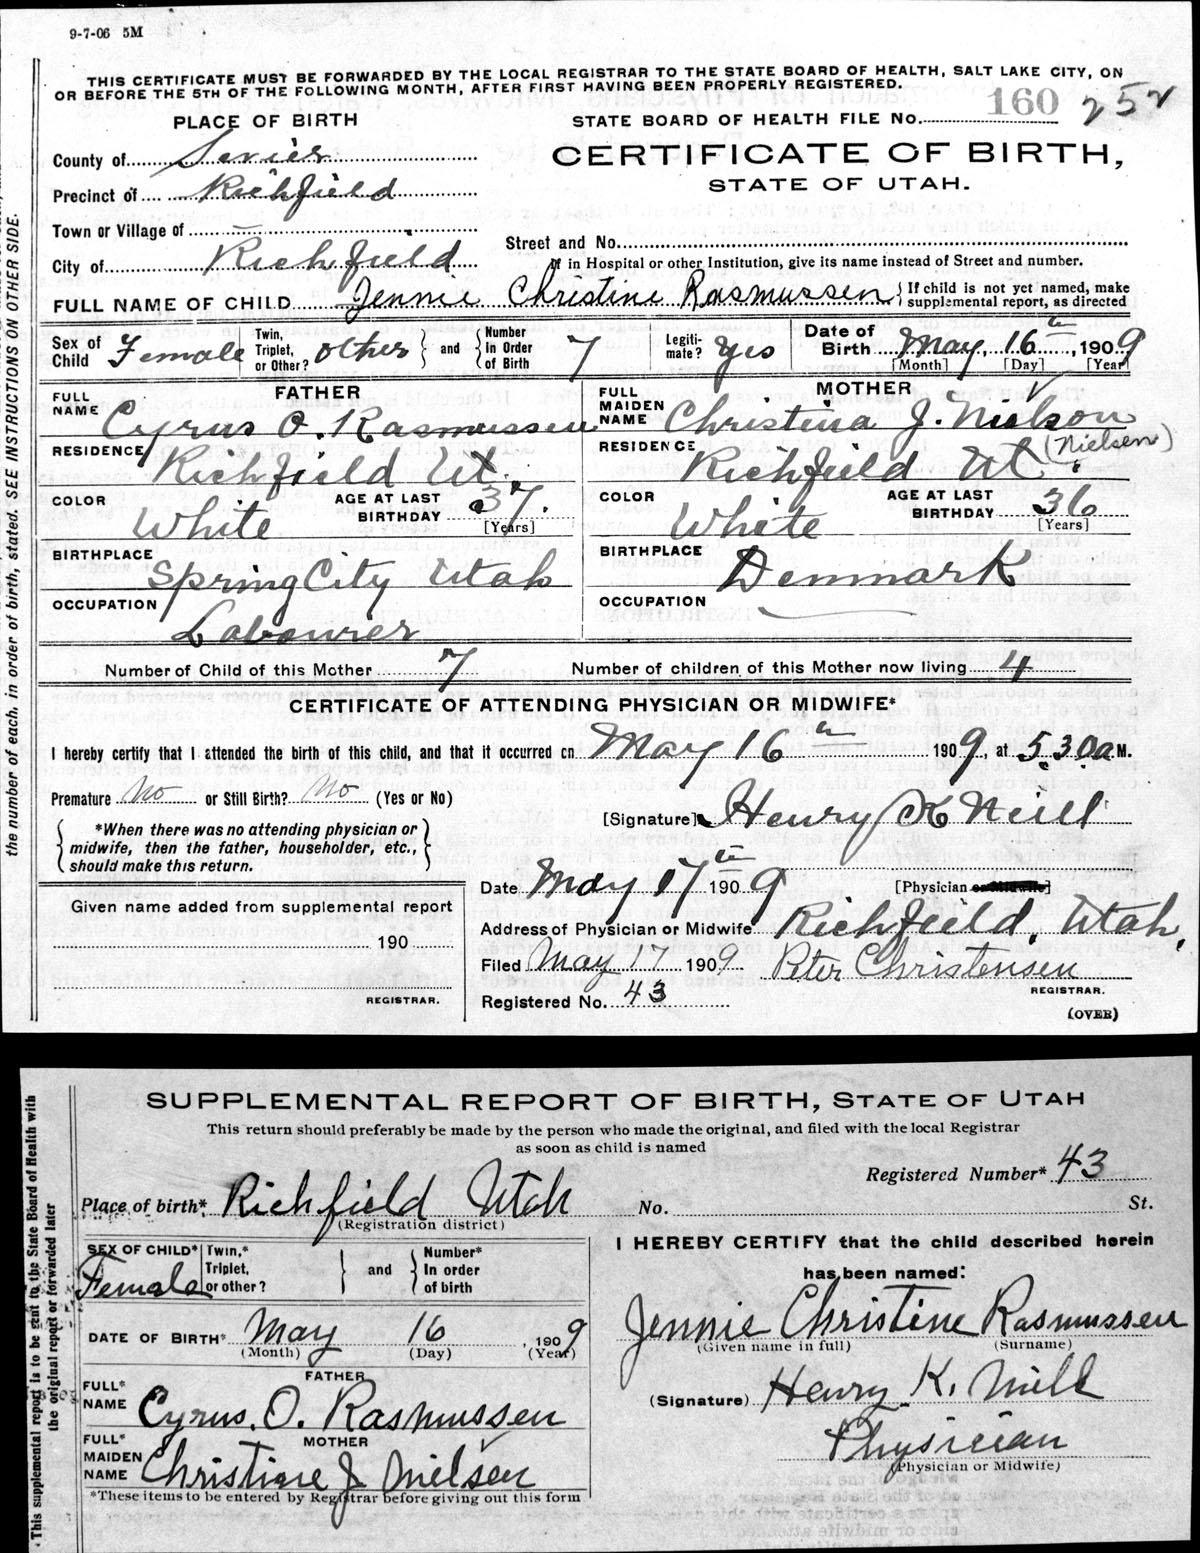 9-7-06 5M
THIS CERTIFICATE MUST BE FORWARDED BY THE LOCAL REGISTRAR TO THE STATE BOARD OF HEALTH, SALT LAKE CITY, ON
OR BEFORE THE 5TH OF THE FOLLOWING MONTH, AFTER FIRST HAVING BEEN PROPERLY REGISTERED.
PLACE OF BIRTH
STATE BOARD OF HEALTH FILE NO. 160 252
County of Sevier
CERTIFICATE OF BIRTH,
Precinct of Richfield
STATE OF UTAH.
Town or Village of
Street and No.
City of Richfield
If in Hospital or other Institution, give its name instead of Street and number.
FULL NAME OF CHILD Jennie Christine Rasmussen
If child is not yet named, make
supplemental report, as directed
Sex of Child Female
Twin, Triplet, or Other? other and Number In Order of Birth 7
Legiti-mate? Yes
Date of Birth May, 16th, 1909
[Month] [Day] [Year]
FATHER
FULL NAME Cyrus O. Rasmussen
RESIDENCE Richfield Ut.
COLOR White
AGE AT LAST BIRTHDAY 37. [Years]
BIRTHPLACE Spring City Utah
OCCUPATION Labourier
MOTHER
FULL MAIDEN NAME Christina J. Nielson
(Nielsen)
RESIDENCE Richfield Ut.
COLOR White
AGE AT LAST BIRTHDAY 36 [Years]
BIRTHPLACE Denmark
OCCUPATION
Number of Child of this Mother 7 Number of children of this Mother now living 4
CERTIFICATE OF ATTENDING PHYSICIAN OR MIDWIFE*
I hereby certify that I attended the birth of this child, and that it occurred on May 16th 1909, at 5.30a M.
Premature No or Still Birth? No (Yes or No)
[Signature] Henry K Neill
*When there was no attending physician or
midwife, then the father, householder, etc.,
should make this return.
Date May 17th 1909 [Physician or Midwife]
Given name added from supplemental report
190
REGISTRAR.
Address of Physician or Midwife Richfield, Utah,
Filed May 17 1909 Peter Christensen
REGISTRAR.
Registered No. 43
(OVER)
the number of each, in order of birth, stated. SEE INSTRUCTIONS ON OTHER SIDE.
SUPPLEMENTAL REPORT OF BIRTH, STATE OF UTAH
This return should preferably be made by the person who made the original, and filed with the local Registrar
as soon as child is named
Registered Number* 43
Place of birth* Richfield Utah No. St.
(Registration district)
SEX OF CHILD* Female
Twin,* Triplet, or other? and Number* In order of birth
DATE OF BIRTH* May 16, 1909
(Month) (Day) (Year)
FATHER
FULL* NAME Cyrus. O. Rasmussen
MOTHER
FULL* MAIDEN NAME Christine J. Nielsen
*These items to be entered by Registrar before giving out this form
I HEREBY CERTIFY that the child described herein
has been named:
Jennie Christine Rasmussen
(Given name in full) (Surname)
(Signature) Henry K. Neill
Physician
(Physician or Midwife)
This supplemental report is to be sent to the State Board of Health with
the original report or forwarded later